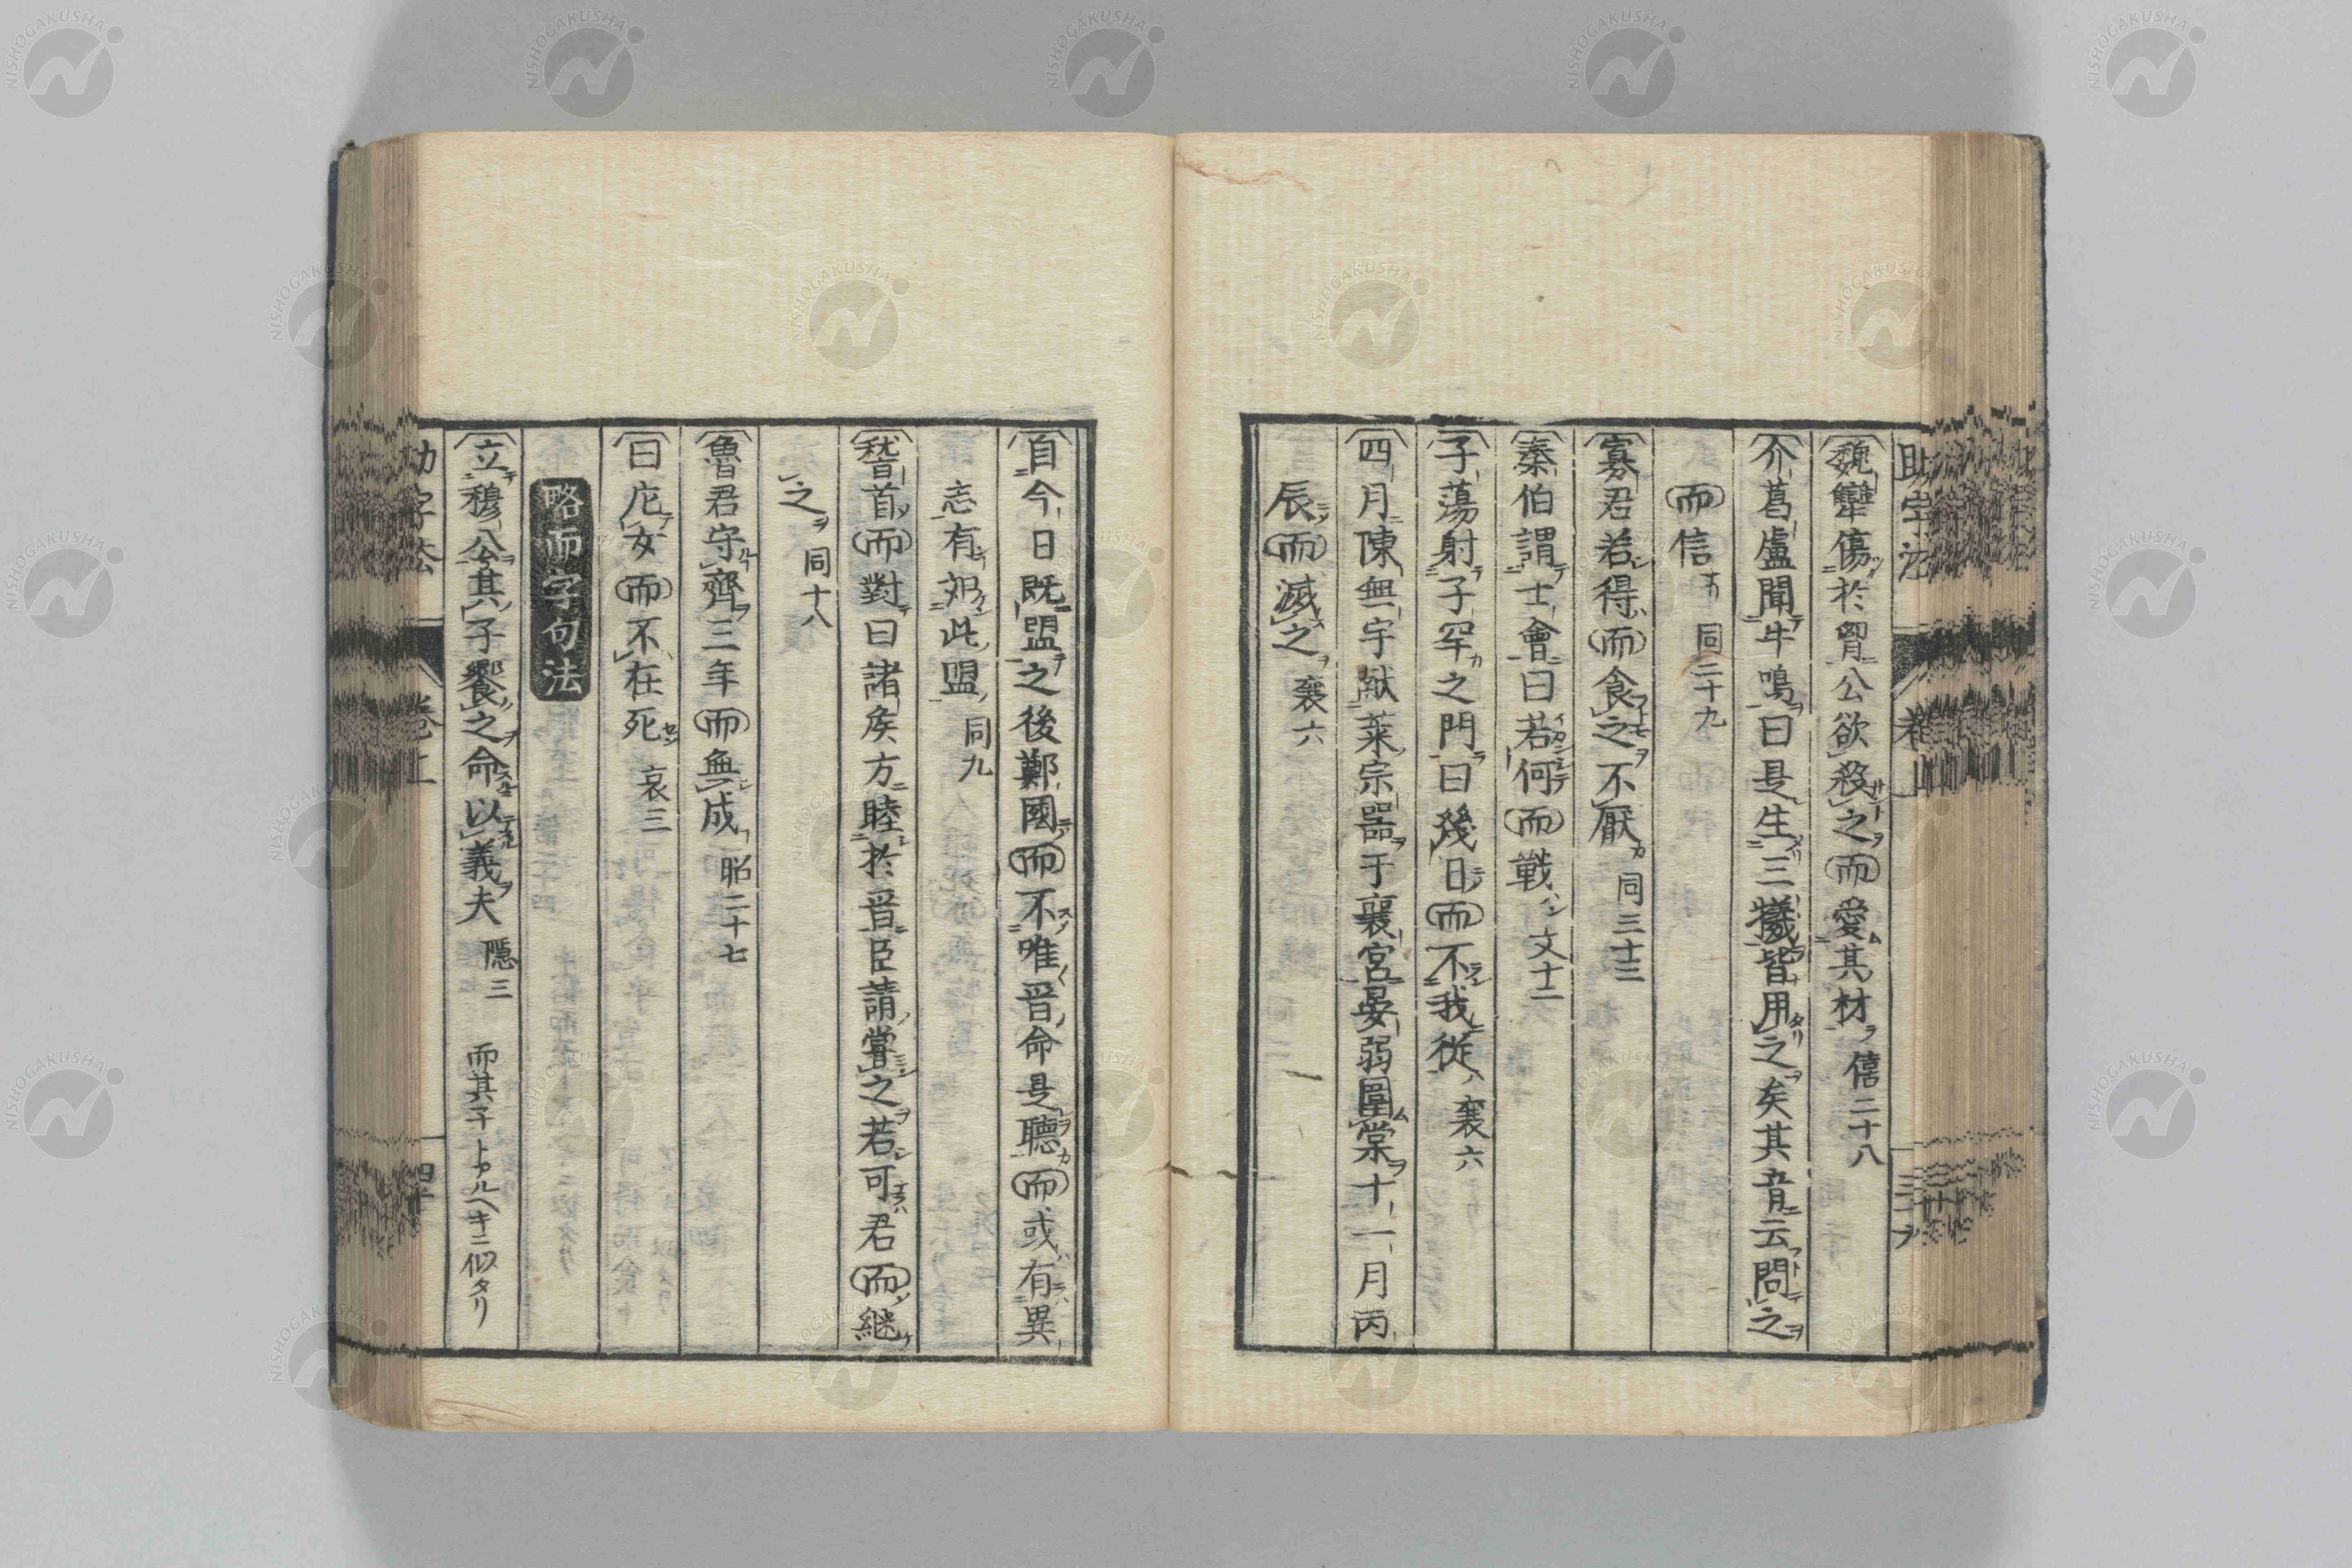 魏犨傷於胷公欲殺之而愛其材 僖二十八
介葛盧聞牛鳴曰是生三犧皆用之矣其音云問之
而信 同二十九
寡君若得而食之不厭 同三十三
秦伯謂士會曰若何而戰 文十二
子蕩射子罕之門曰幾日而不我從 襄六
四月陳無宇獻萊宗器于襄宮晏弱圍棠十一月丙
辰而滅之 襄六
自今日既盟之後鄭國而不唯晉命是聽而或有異
志有如此盟 同九
稽首而對曰諸矦方睦於晉臣請嘗之若可君而継
之 同十八
魯君守齊三年而無成 昭二十七
曰庀女而不在死 哀三
略而字句法
立穆公其子饗之命以義夫 隱三 而其子トアルヘキニ似タリ
助字法 卷上 四十
NISHOGAKUSHA